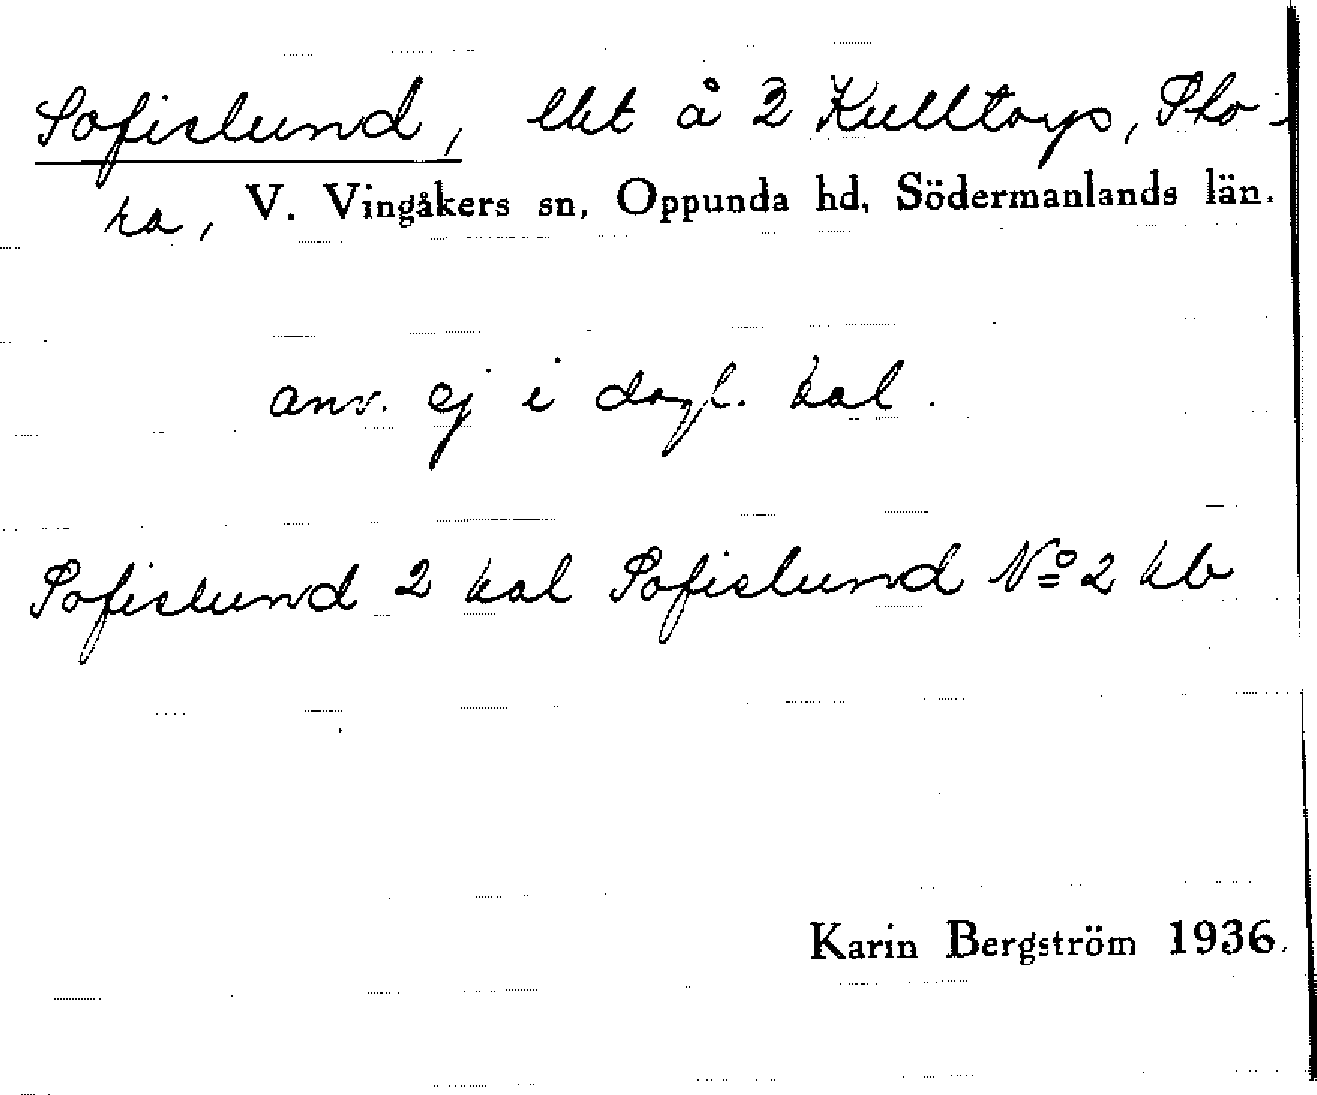 Sofislund, lht å 2 Kulltorp, Sko-
ra, V. Vingåkers sn, Oppunda hd, Södermanlands län.
anv. ej i dagl. tal.
Sofislund 2 kal Sofislund No 2 hb
Karin Bergström 1936.